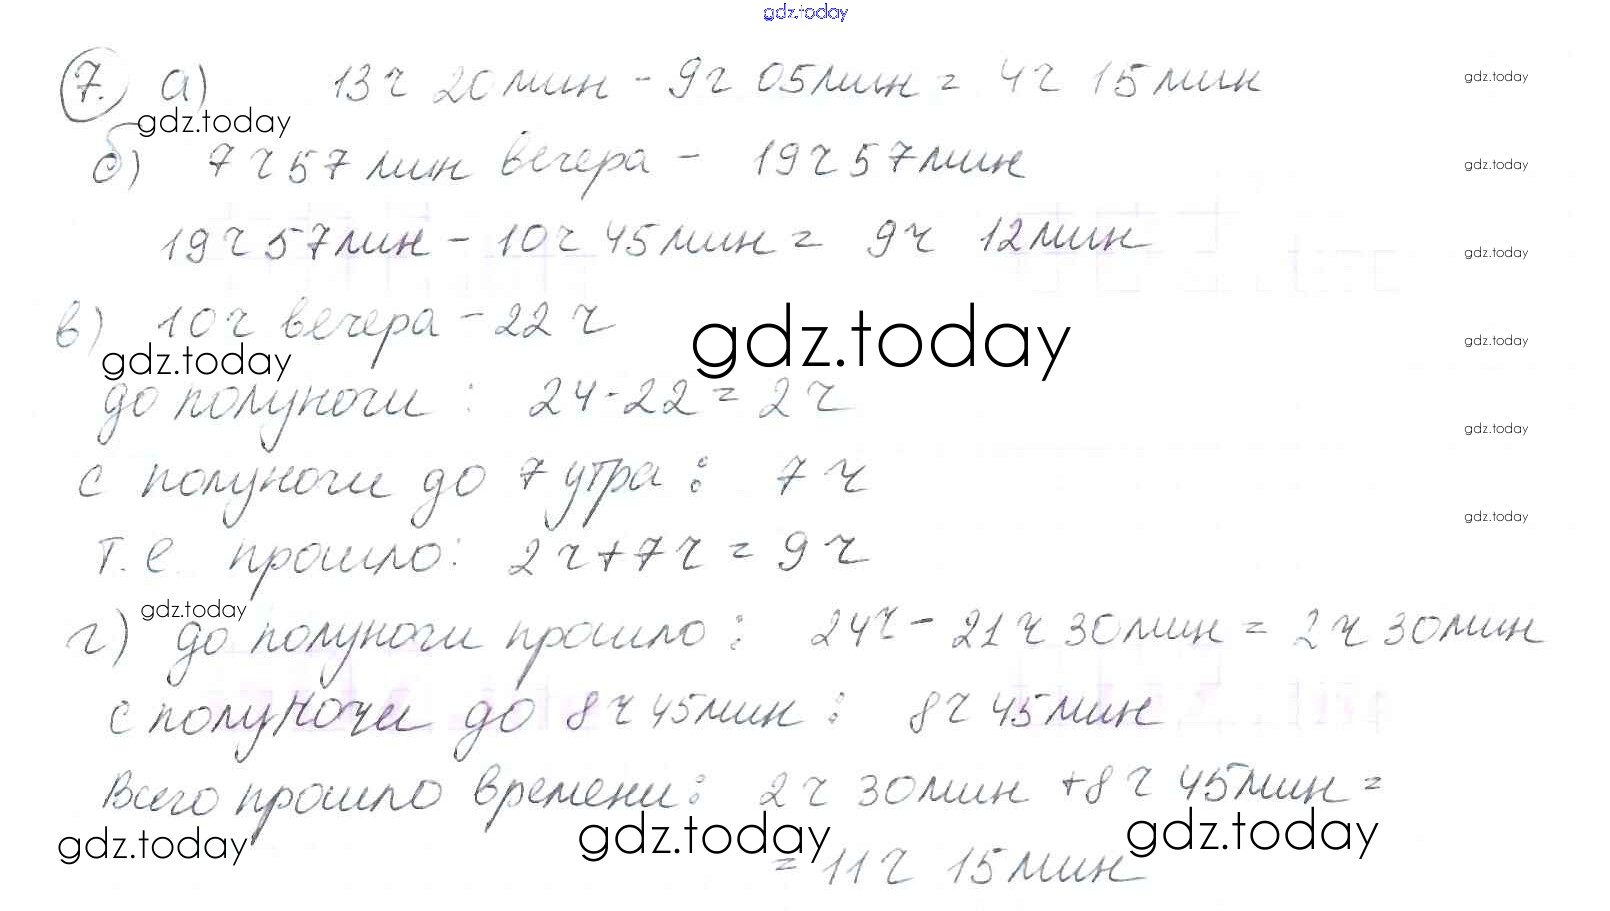 gdz.today
7. а) 13 ч 20 мин - 9 ч 05 мин = 4 ч 15 мин
gdz.today
gdz.today
б) 7 ч 57 мин вечера - 19 ч 57 мин
gdz.today
19 ч 57 мин - 10 ч 45 мин = 9 ч 12 мин
gdz.today
в) 10 ч вечера - 22 ч
gdz.today
gdz.today
gdz.today
до полуночи : 24 - 22 = 2 ч
gdz.today
с полуночи до 7 утра : 7 ч
gdz.today
т.е. прошло: 2 ч + 7 ч = 9 ч
gdz.today
г) до полуночи прошло : 24 ч - 21 ч 30 мин = 2 ч 30 мин
с полуночи до 8 ч 45 мин : 8 ч 45 мин
Всего прошло времени: 2 ч 30 мин + 8 ч 45 мин =
gdz.today
gdz.today
gdz.today
= 11 ч 15 мин